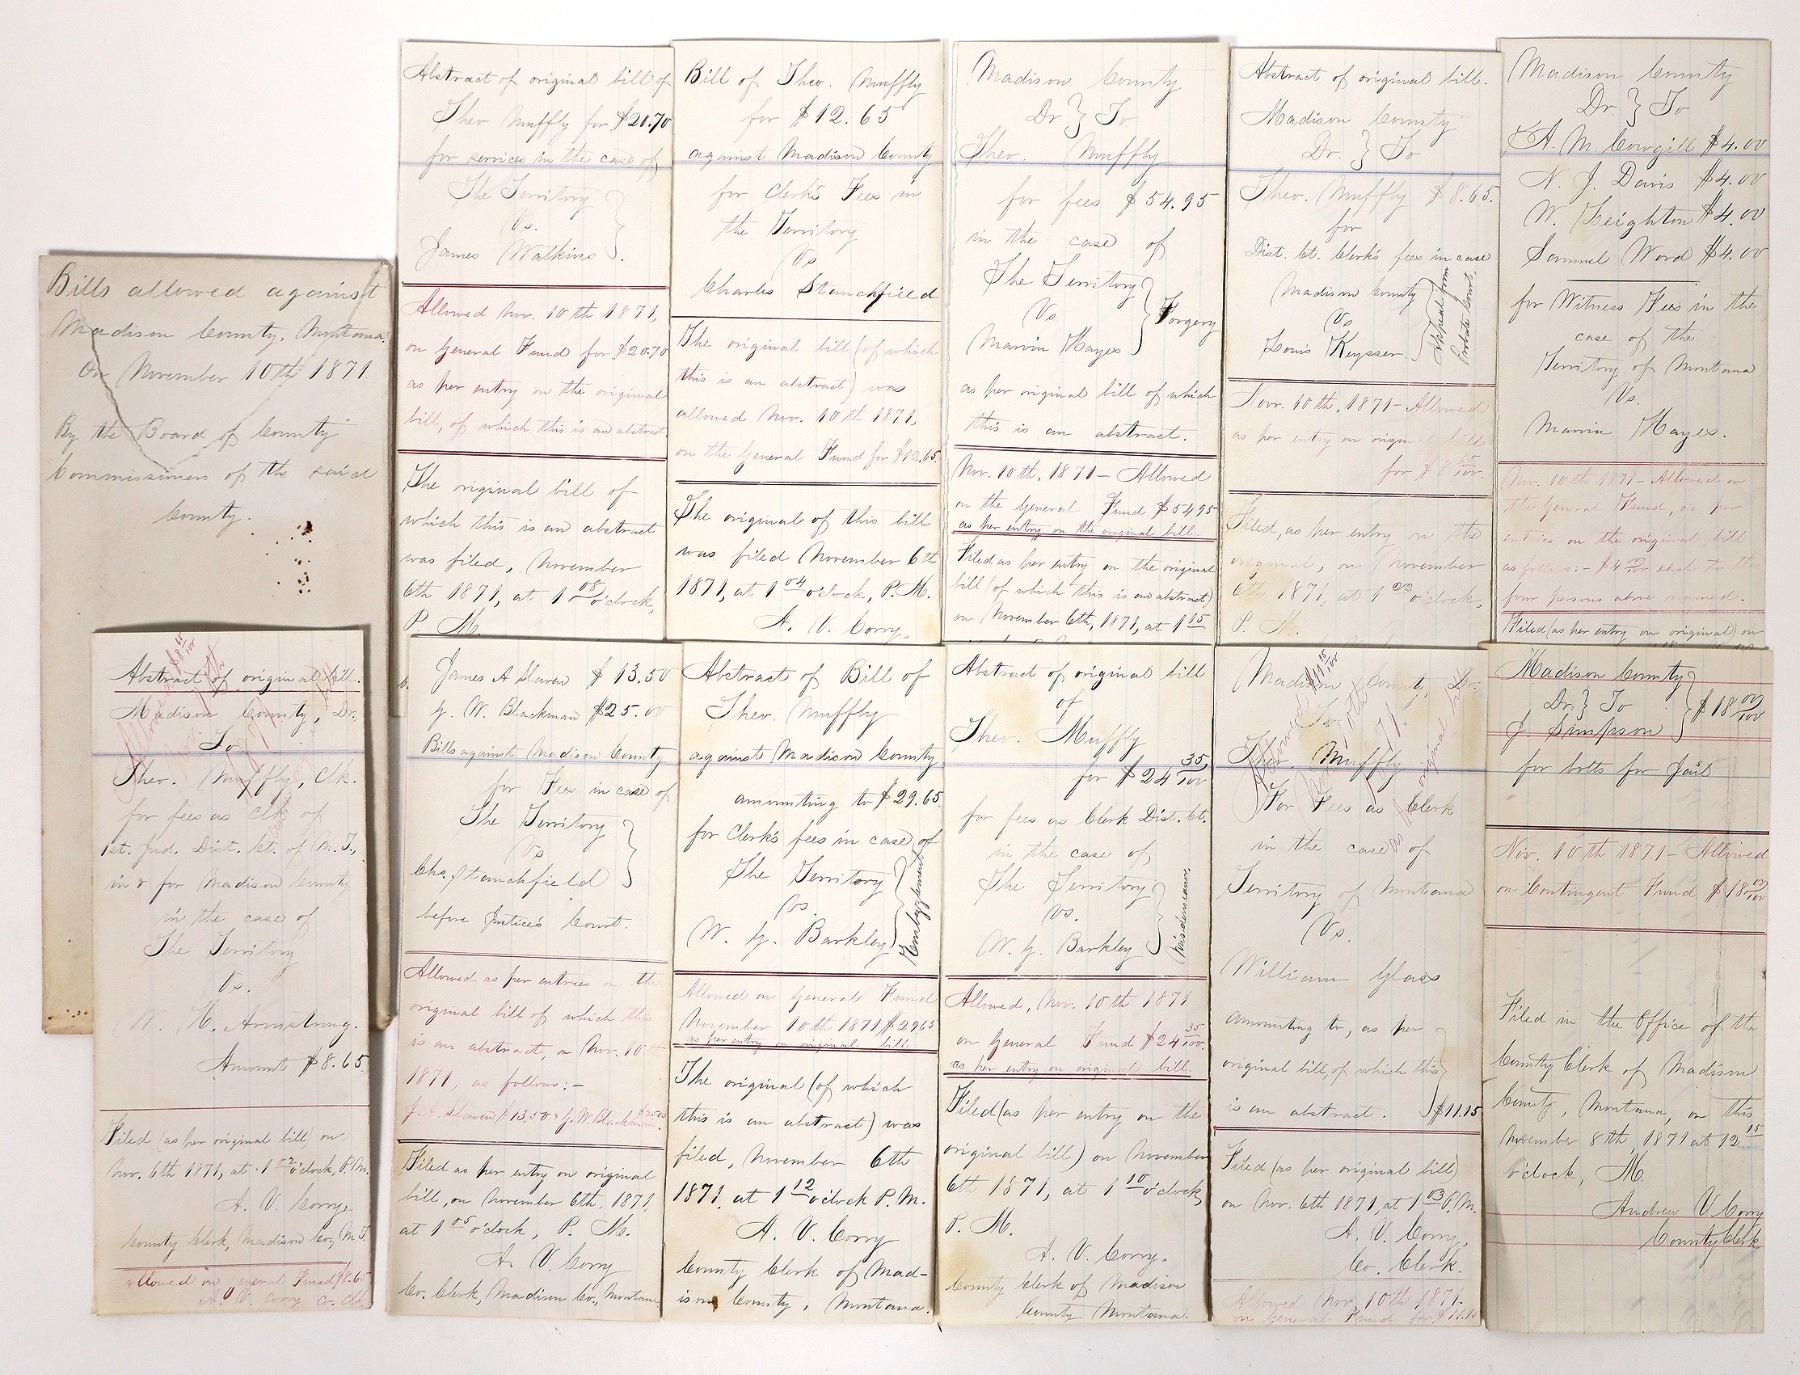 Bills allowed against
Madison County, Montana.
On November 10th 1871.
By the Board of County
Commissioners of the said
County.
Abstract of original bill of
Theo Muffly for $20.70
for services in the case of
The Territory
Vs.
James Watkins.
Allowed Nov. 10th 1871,
on General Fund for $20.70
as per entry on the original
bill, of which this is an abstract.
The original bill of
which this is an abstract
was filed, November
6th 1871, at 1 08 o'clock,
P. M.
Bill of Theo. Muffly
for $12.65
against Madison County
for Clerk's Fees in
the Territory
Vs
Charles Stanchfield
The original bill (of which
this is an abstract) was
allowed Nov. 10th 1871,
on the General Fund for $12.65
The original of this bill
was filed November 6th
1871, at 1 04 o'clock, P.M.
A. V. Corry,
Madison County
Dr } To
Theo. Muffly
for fees $54.95
in the case of
The Territory
Vs
Marvin Hayes
Forgery
as per original bill of which
this is an abstract.
Nov. 10th, 1871- Allowed
on the General Fund $54.95
as per entry on the original bill.
Filed as per entry on the original
bill (of which this is an abstract)
on November 6th, 1871, at 1 15
Abstract of original bill.
Madison County
Dr. } To
Theo. Muffly $8.65.
for
Dist. Ct. Clerk's fees in case
Madison County
Vs
Louis Keysser.
Appeal from
Probate Court.
Nov. 10th, 1871- Allowed
as per entry on original bill
for $8 65/100.
Filed, as per entry on the
original, on November
6th 1871, at 1 22 o'clock,
P. M.
Madison County
Dr. } To
A. M. Cowgill $4.00
N. J. Davis $4.00
W. Leighton $4.00
Samuel Word $4.00
for Witness Fees in the
case of the
Territory of Montana
Vs.
Marvin Hayes.
Nov. 10th 1871- Allowed on
the General Fund, as per
entries on the original bill
as follows:- $4 each to the
four persons above named.
Filed (as per entry on original) on
Abstract of original bill.
Madison County, Dr.
To
Theo. Muffly, Clk.
for fees as Clk of
1st. Jud. Dist. Ct. of M.T.,
in & for Madison County
in the case of
The Territory
Vs.
W. H. Armstrong.
Amount $8.65
Filed (as per original bill) on
Nov. 6th 1871, at 1 02 o'clock, P.M.
A. V. Corry,
County Clerk, Madison Co., M.T.
Allowed on general Fund $8.65
A. V. Corry Co. Clk
James A Slaven $13.50
G. W. Blackman $25.00
Bills against Madison County
for Fees in case of
The Territory
Vs
Chs. Stanchfield
before Justice's Court.
Allowed as per entries on the
original bill of which this
is an abstract, on Nov. 10th
1871, as follows:-
J.A. Slaven $13.50 & G.W. Blackman $25.00
Filed as per entry on original
bill, on November 6th, 1871,
at 1 05 o'clock, P. M.
A. V. Corry
Co. Clerk, Madison Co., Montana.
Abstract of Bill of
Theo. Muffly
against Madison County
amounting to $29.65
for Clerk's fees in case of
The Territory
Vs.
W. G. Barkley
Embezzlement
Allowed on General Fund
November 10th 1871 $29.65
as per entry on original bill.
The original (of which
this is an abstract) was
filed, November 6th
1871, at 1 12 o'clock P.M.
A. V. Corry
County Clerk of Mad-
ison County, Montana.
Abstract of original bill
of
Theo. Muffly
for $24 35/100
for fees as Clerk Dist. Ct.
in the case of
The Territory
Vs.
W. G. Barkley
Misdemeanor
Allowed, Nov. 10th 1871
on General Fund $24 35/100.
as per entry on original bill.
Filed (as per entry on the
original bill) on November
6th 1871, at 1 10 o'clock,
P. M.
A. V. Corry.
County Clerk of Madison
County Montana.
Madison County, Dr.
To
Theo. Muffly
For Fees as Clerk
in the case of
Territory of Montana
Vs.
William Glass
amounting to, as per
original bill, of which this
is an abstract. $11.15
Filed (as per original bill)
on Nov. 6th 1871, at 1 03 P.M.
A. V. Corry,
Co. Clerk.
Allowed Nov. 10th 1871-
on General Fund for $11.15
Madison County
Dr. } To
J Simpson
$18 00/100
for bolts for Jail
Nov. 10th 1871- Allowed
on Contingent Fund $18 00/100
Filed in the Office of the
County Clerk of Madison
County, Montana, on this
November 8th, 1871 at 12 15
o'clock, M
Andrew V Corry
County Clerk